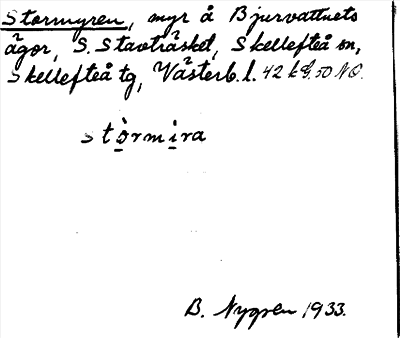 Stormyren, myr å Bjurvattnets
ägor, S. Stavträsket, Skellefteå sn,
Skellefteå tg, Västerb. l. 42 k 9. 50 NO.
stò̱rmi̱ra
B. Nygren 1933.